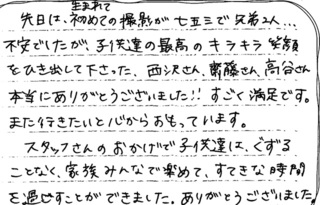 生まれて
先日は、初めての撮影が七五三で兄弟2人...
不安でしたが、子供達の最高のキラキラ笑顔
をひき出して下さった、西沢さん、斉藤さん、高谷さん
本当にありがとうございました!! すごく満足です。
また行きたいと心からおもっています。
スタッフさんのおかげで子供達は、ぐずる
ことなく、家族みんなで楽めて、すてきな時間
を過せすことができました。ありがとうございました